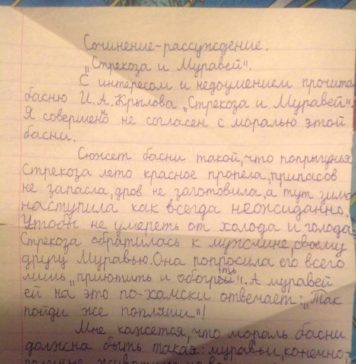 Сочинение-рассуждение.
„Стрекоза и Муравей".
С интересом и недоумением прочитал
басню И.А.Крылова „Стрекоза и Муравей".
Я совершено не согласен с моралью этой
басни.
Сюжет басни такой, что попрыгунья
Стрекоза лето красное пропела, припасов
не запасла, дров не заготовила, а тут зима
наступила как всегда неожиданно.
Чтобы не умереть от холода и голода
Стрекоза обратилась к мужчине своему
другу Муравью. Она попросила его всего
лишь „приютить и обогреть". А муравей
ей на это по-хамски отвечает: „Так
пойди же попляши"!
Мне кажется, что мораль басни
должна быть такая: муравьи, конечно